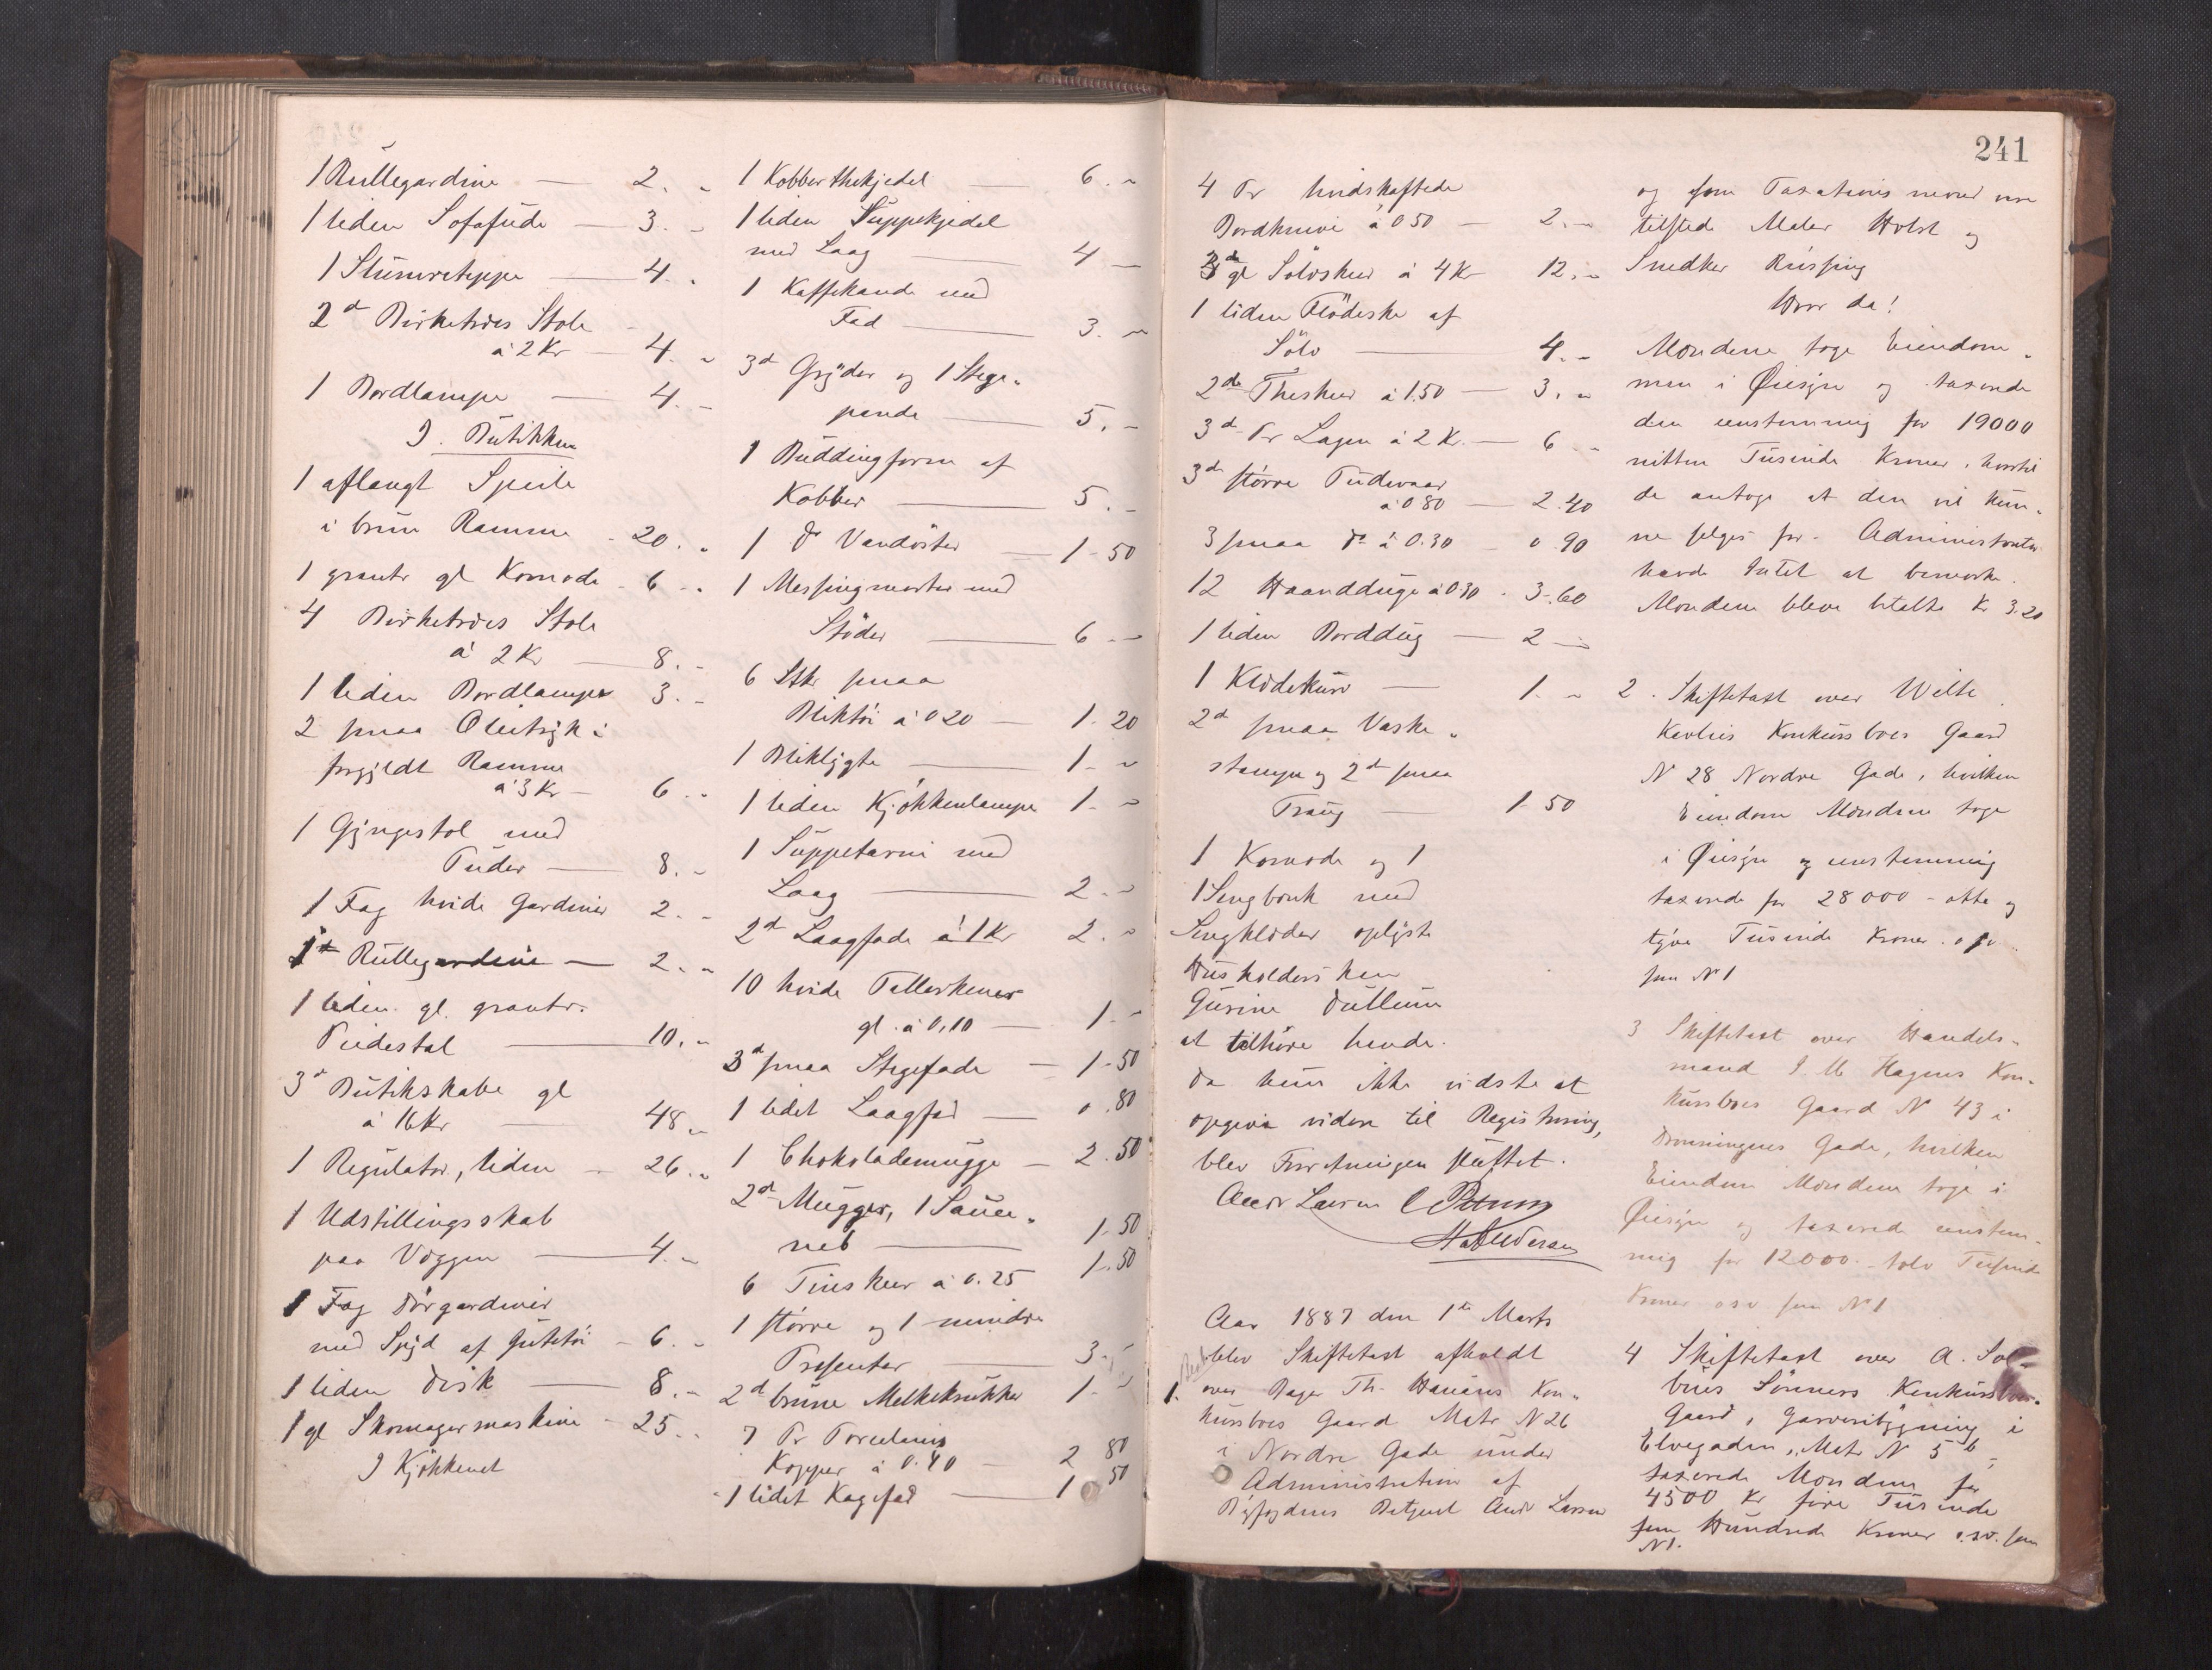 1 Rullegardine — 2. "
1 liden Sofapude — 3. "
1 Slumreteppe — 4. "
2 d Birketræes Stole
à 2 Kr — 4. "
1 Bordlampe — 4. "
I. Butikken
1 aflangt Speile
i brun Ramme - 20. "
1 grantr gl Komode - 6 - "
4 Birketræes Stole
à 2 Kr — 8. "
1 liden Bordlampe 3. "
2 smaa Olietryk i
forgyldt Ramme
à 3 Kr — 6. "
1 Gyngestol med
Puder — 8. "
1 Fag hvide Gardiner 2. "
1 Rullegardine — 2. "
1 liden gl. grantr.
Piedestal — 10. "
3 d Butikskabe gl
à 16 Kr — 48 "
1 Regulator, liden — 26. "
1 Udstillingsskab
paa Væggen — 4. "
1 Fag Dörgardiner
med Spyd af Gutetøi - 6. "
1 liden Disk — 8. "
1 gl Skomagermaskine - 25. "
I Kjökkenet
1 Kobberthekjedel — 6. "
1 liden Suppekjedel
med Laag — 4 —
1 Kaffekande med
Fad — 3. "
3 d Gryder og 1 Stege-
pande — 5. "
1 Buddingform af
Kobber — 5. "
1 do Vandöster — 1 - 50
1 Messingmorter med
Stöder — 6 - "
6 Stkr smaa
Bliktöi à 0 20 — 1. 20
1 Bliklygte — 1. "
1 liden Kjökkenlampe 1. "
1 Suppeterrin med
Laag — 2. "
2 d Laagfade à 1 Kr 2. "
10 hvide Tallerkener
gl. à 0,10 — 1 - "
3 d smaa Stegefade — 1 - 50
1 lidet Laagfad — 0. 80
1 Chokolademugge — 2. 50
2 d Mugger, 1 Sauce-
neb — 1 - 50
6 Tinskeer à 0. 25 1. 50
1 större og 1 mindre
Presenter — 3. "
2 d brune Melkekrukker 1. "
7 Pr Porcelains
Kopper à 0. 40 — 2 80
1 lidet Kagefad — 1 50
241
4 Pr hvidskaftede
Bordknive à 0 50 — 2. —
3 d gl Sölvskeer à 4 Kr 12. "
1 liden Flödeske af
Sölv — 4. "
2 d Theskeer à 1.50 — 3. "
3 d Pr Lagen à 2 Kr. — 6 - "
3 d större Pudevaar
à 0 80 — 2. 40
3 smaa do à 0.30 - 0 90
12 Haandduge à 0 30 - 3 -. 60
1 liden Borddug — 2 —
1 Klædekurv — 1. "
2 d smaa Vaske-
stamper og 2 d smaa
Traug — 1 50
1 Komode og 1
1 Sengbænk med
Sengklæder oplyste
Husholdersken
Gurine Dullum
at tilhöre hende.
Da hun ikke vidste at
opgive videre til Registrering,
blev Forretningen sluttet.
Andr Larsen
H Andersen
Aar 1887 den 1ste Marts
blev Skiftetaxt afholdt
1. over Bager Th. Hanans Kon-
kursboes Gaard Matr N 26
i Nordre Gade under
Administration af
Byfogdens Betjent Andr Larsen
og som Taxations mænd vare
tilstede Maler Holst og
Snedker Russing
Hvor da!
Mændene toge Eiendom-
men i Øiesyn og taxerede
den eenstemmig for 19000
nitten Tusinde Kroner, hvortil
de antoge at den vil kun-
ne selges for. Administrator
havde Intet at bemærke.
Mændene bleve betalte Kr 3.20
2. Skiftetaxt over Wilh.
Kavlies Konkursboes Gaard
N 28 Nordre Gade, hvilken
Eiendom Mændene toge
i Øiesyn og eenstemmig
taxerede for 28000 - otte og
tyve Tusinde Kroner. o s v.
som N 1
3 Skiftetaxt over Handels-
mand I. M. Hagens Kon-
kursboes Gaard N 43 i
Dronningens Gade, hvilken
Eiendom Mændene toge i
Øiesyn og taxered eenstem-
mig for 12000 - tolv Tusinde
Kroner osv som N 1
4 Skiftetaxt over A. Sol-
bues Sönners Konkursboes
Gaard, Garveribygning i
Elvegaden, Matr N 56
taxerede Mændene for
4500 Kr fire Tusinde
fem Hundrede Kroner o.s.v. som
N 1.